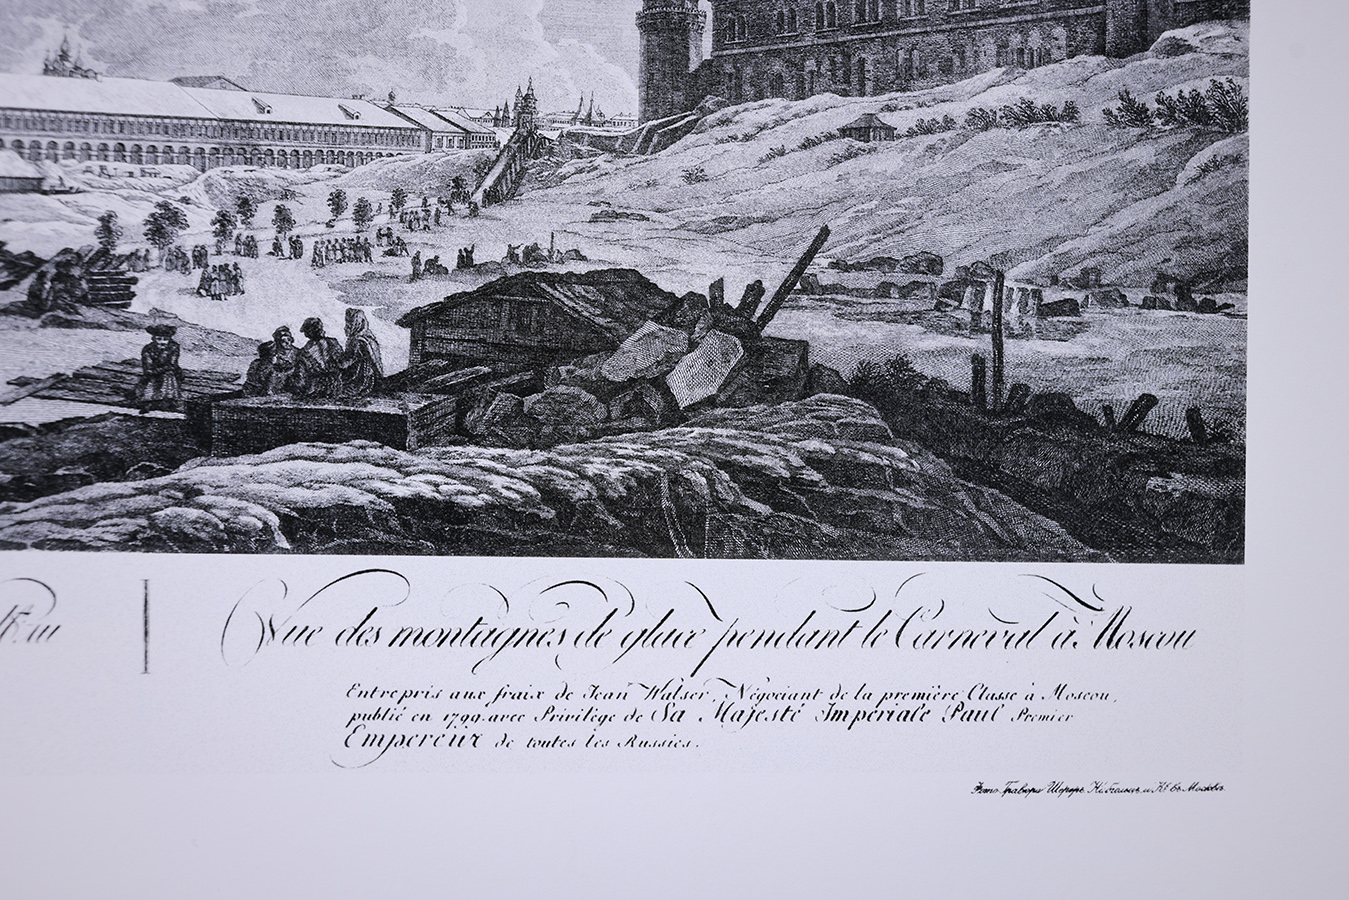 Vue des montagnes de glace pendant le Carneval à Moscou
Entrepris aux fraix de Jean Walser, Négociant de la première Classe à Moscou,
publié en 1799. avec Privilège de Sa Majesté Impériale Paul Premier
Empereur de toutes les Russies.
Фото-Гравюра Шереръ, Набгольцъ и Кº въ Москвѣ.